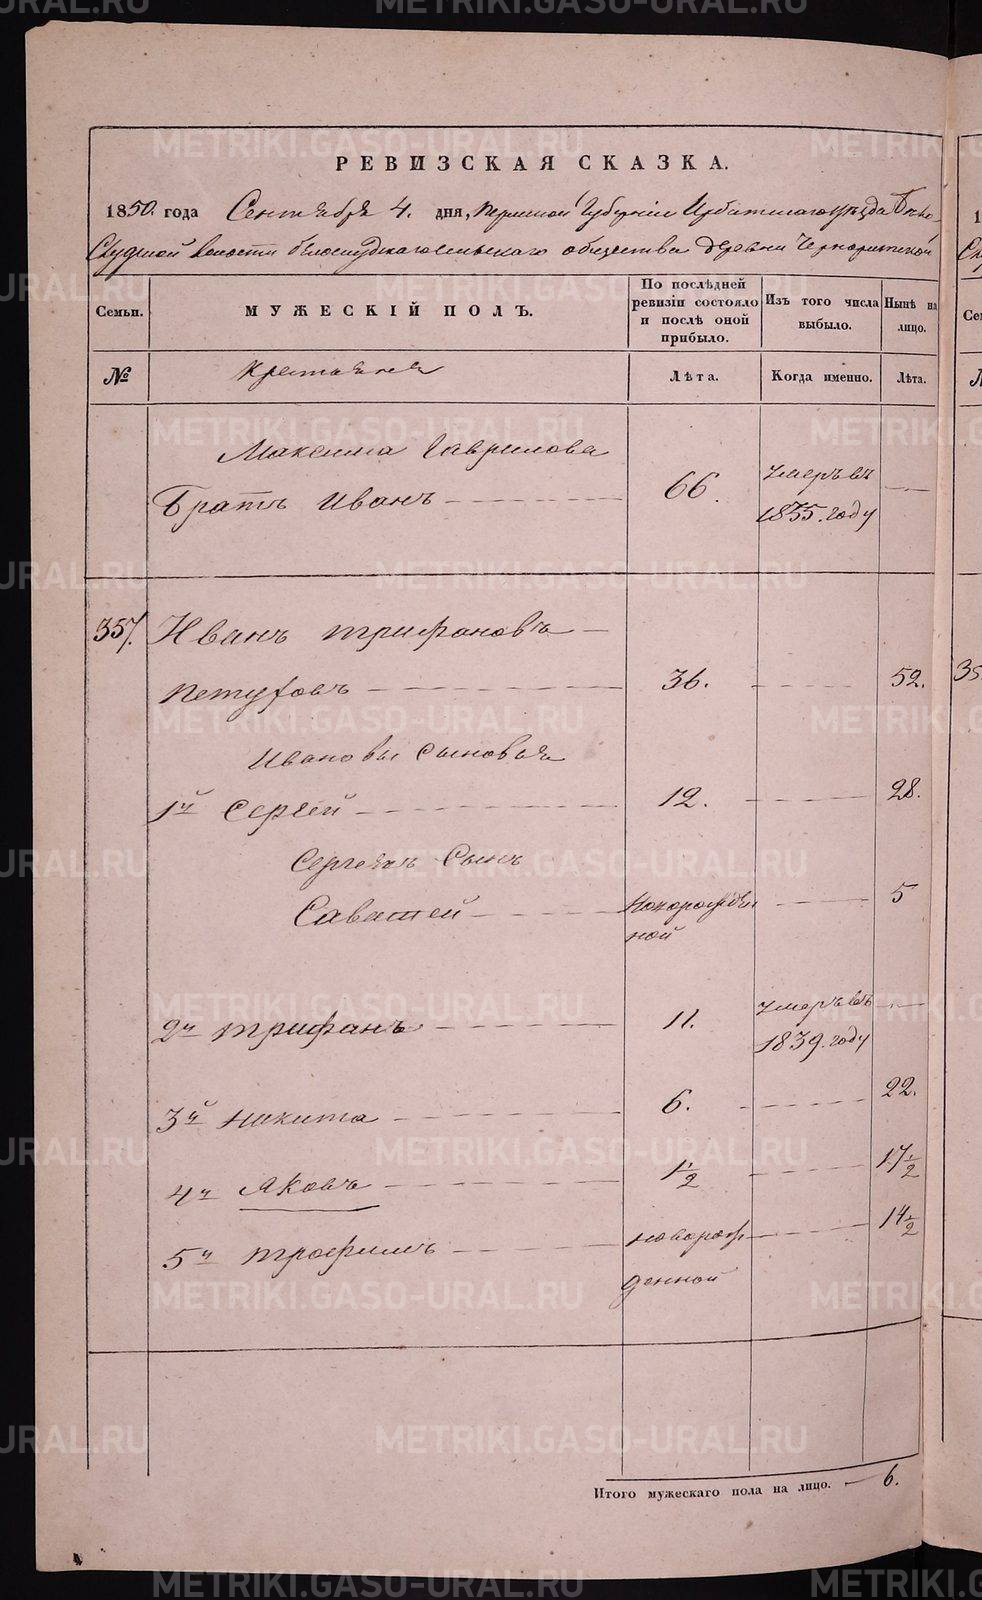 METRIKI.GASO-URAL.RU
РЕВИЗСКАЯ СКАЗКА.
1850. года Сентября 4. дня, Пермской Губернiи Ирбитскаго уѣзда Бѣло-
Слудской волости белослудскаго сельскаго общества деревни
Семьи. МУЖЕСКІЙ ПОЛЪ. По послѣдней ревизіи состояло и послѣ оной прибыло. Изъ того числа выбыло. Нынѣ на лицо.
№ Крестьяне Лѣта. Когда именно. Лѣта.
Максима Гаврилова
Братъ Иванъ 66. умеръ въ 1835. году
357. Иванъ трифановъ
Петуховъ 36. 52.
Ивановы сыновья
1й Сергей 12. 28.
Сергеяъ Сынъ
Саватей новорожденной 5
2й трифанъ 11. умеръ въ 1839. году
3й никита 6. 22.
4й Яковъ 1 1/2 17 1/2
5й трофимъ новорожденной 14 1/2
Итого мужескаго пола на лицо. 6.